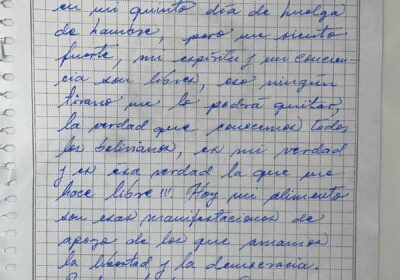 en mi quinto día de huelga
de hambre, pero me siento
fuerte, mi espíritu y mi concien-
cia son libres, eso ningún
tirano me lo podrá quitar,
la verdad que conocemos todos
los bolivianos, es mi verdad
y es esa verdad la que me
hace libre!!! Hoy mi alimento
son esas manifestaciones de
apoyo de los que amamos
la libertad y la democracia.